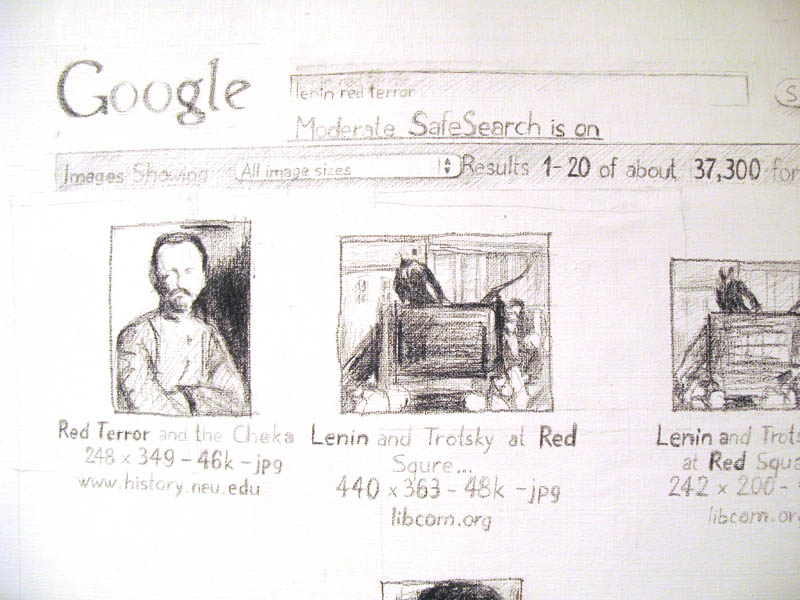 Google
lenin red terror
S
Moderate SafeSearch is on
Images Showing All image sizes Results 1-20 of about 37,300 for
Red Terror and the Cheka
248 x 349 - 46k - jpg
www.history.neu.edu
Lenin and Trotsky at Red
Squre...
440 x 363 - 48k - jpg
libcom.org
Lenin and Trots
at Red Squa
242 x 200 -
libcom.org